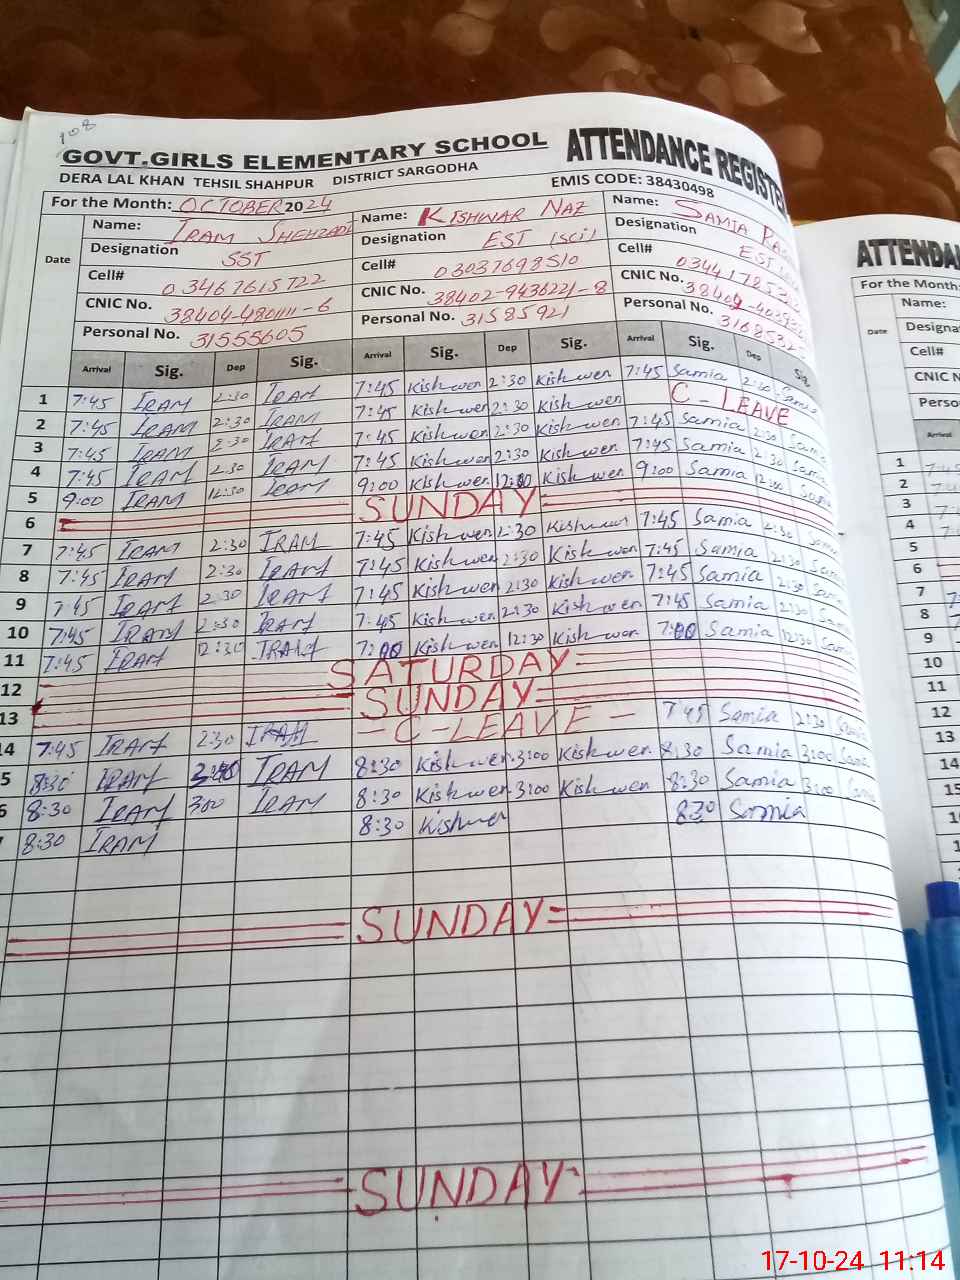 108
GOVT.GIRLS ELEMENTARY SCHOOL ATTENDANCE REGISTE
DERA LAL KHAN TEHSIL SHAHPUR DISTRICT SARGODHA EMIS CODE: 38430498
For the Month: OCTOBER 2024
Date Name: IRAM SHEHZADI Name: KISHWAR NAZ Name: SAMIA
Designation SST Designation EST (sci) Designation EST
Cell# 03467615722 Cell# 03037698510 Cell#
CNIC No. 38404-4801111-6 CNIC No. 38402-9436221-8 CNIC No.
Personal No. 31555605 Personal No. 31585921 Personal No.
Arrival Sig. Dep Sig. Arrival Sig. Dep Sig. Arrival Sig. Dep Sig.
1 7:45 IRAM 2:30 IRAM 7:45 Kishwer 2:30 Kishwer 7:45 Samia 2:30 Samia
2 7:45 IRAM 2:30 IRAM 7:45 Kishwer 2:30 Kishwer C-LEAVE
3 7:45 IRAM 2:30 IRAM 7:45 Kishwer 2:30 Kishwer 7:45 Samia 2:30 Sam
4 7:45 IRAM 2:30 IRAM 7:45 Kishwer 2:30 Kishwer 7:45 Samia 2:30 Sam
5 9:00 IRAM 12:30 IRAM 9:00 Kishwer 12:00 Kishwer 9:00 Samia 12:30 Sam
6 SUNDAY
7 7:45 IRAM 2:30 IRAM 7:45 Kishwer 2:30 Kishwer 7:45 Samia 2:30 Sam
8 7:45 IRAM 2:30 IRAM 7:45 Kishwer 2:30 Kishwer 7:45 Samia 2:30 Sam
9 7:45 IRAM 2:30 IRAM 7:45 Kishwer 2:30 Kishwer 7:45 Samia 2:30 Sam
10 7:45 IRAM 2:30 IRAM 7:45 Kishwer 2:30 Kishwer 7:45 Samia 2:30 Sam
11 7:45 IRAM 12:30 IRAM 7:00 Kishwer 12:30 Kishwer 7:00 Samia 12:30 Sam
12 SATURDAY
13 SUNDAY
4 7:45 IRAM 2:30 IRAM - C-LEAVE - 7:45 Samia 2:30 Samia
5 8:30 IRAM IRAM 8:30 Kishwer 3:00 Kishwer 8:30 Samia 3:00 Sam
6 8:30 IRAM 3:00 IRAM 8:30 Kishwer 3:00 Kishwer 8:30 Samia 3:00 Sam
8:30 IRAM 8:30 Kishwer 8:30 Samia
SUNDAY
SUNDAY
ATTENDA
For the Month:
Name:
Date Designa
Cell#
CNIC N
Perso
Arrival
1
2
3
4
5
6
7
8
9
10
11
12
13
14
15
17-10-24 11:14